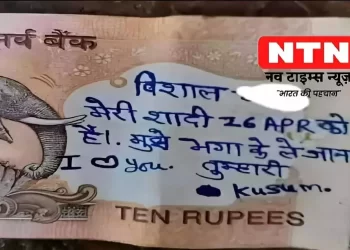 र्व बैंक
NTN
नव टाइम्स न्यूज़
"भारत की पहचान"
विशाल
मेरी शादी 26 APR को
है। मुझे भगा के ले जाना
I ♡ you. तुम्हारी
Kusum.
TEN RUPEES